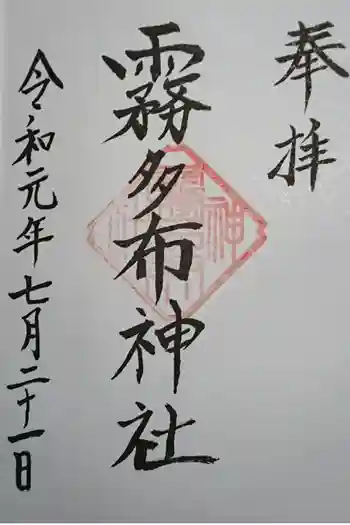 奉拝
霧多布神社
令和元年七月二十一日